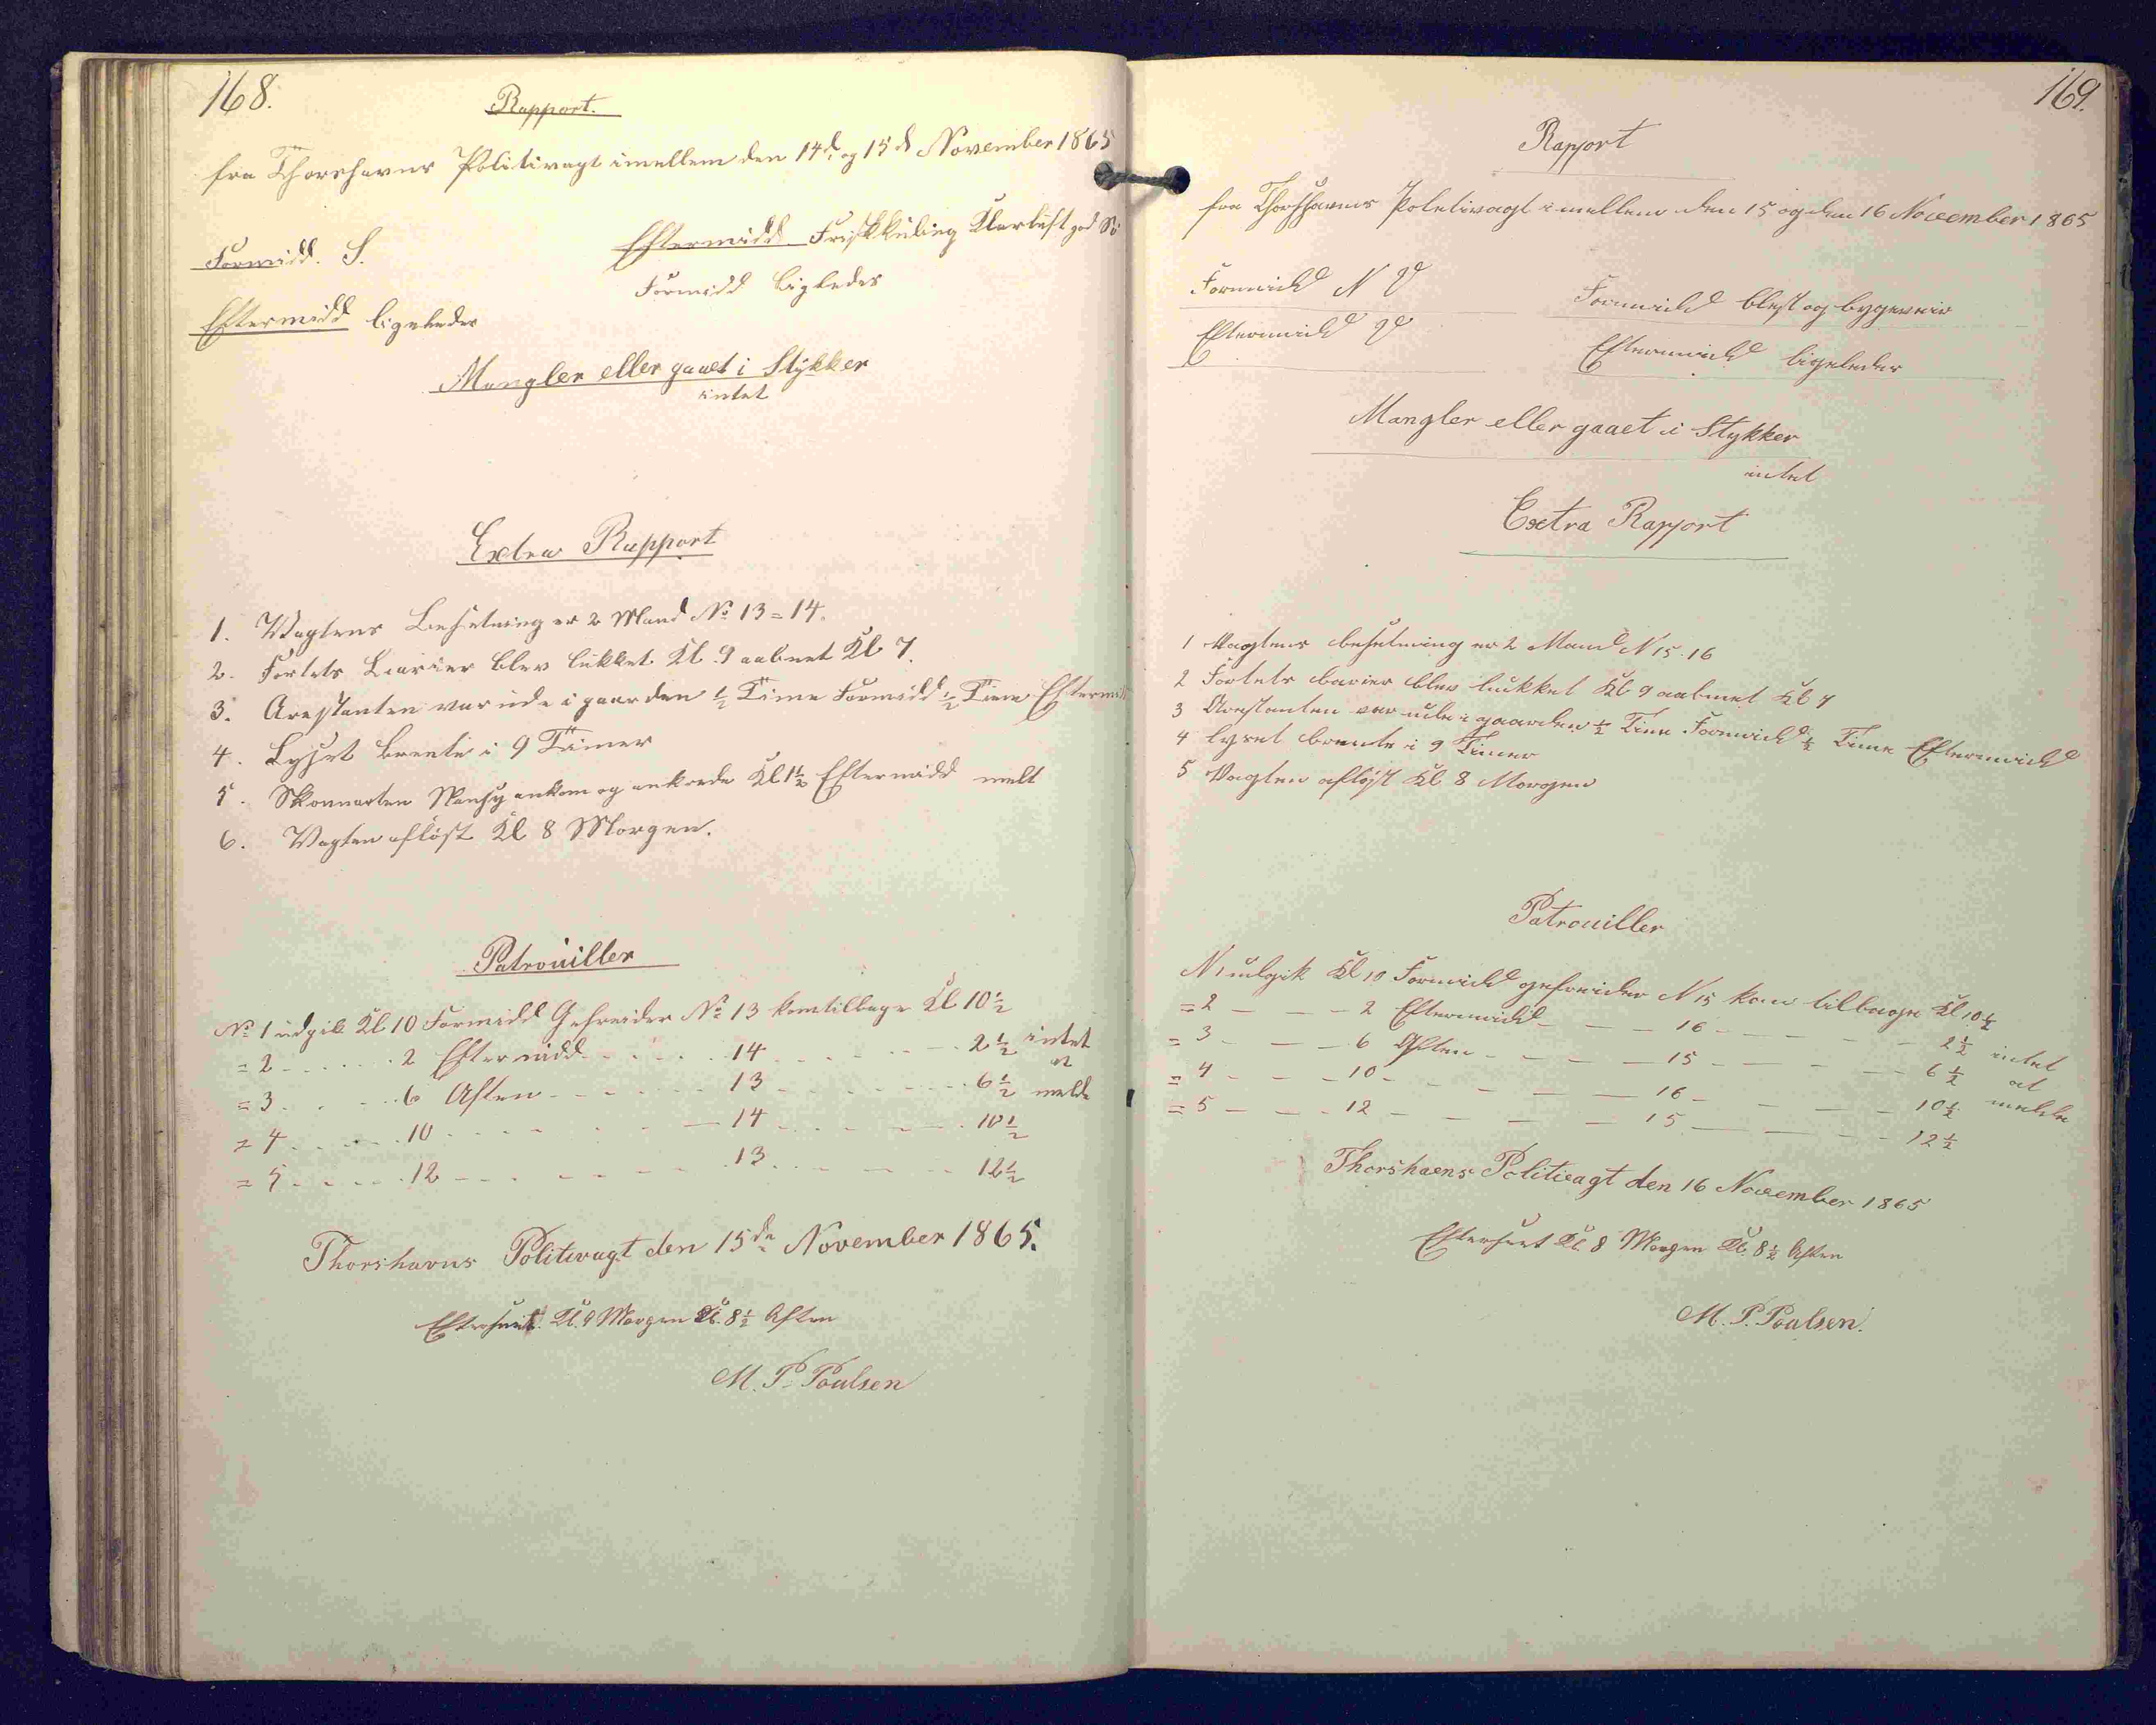 168.
Rapport.
fra Thorshavns Politivagt imellem den 14d. og 15d November 1865
Formidd. S.
Eftermidd Friskkuling Klarluft god Sö
Eftermidd ligeledes
Formidd ligeledes
Mangler eller gaaet i Stykker
intet
Extra Rapport
1. Vagtens Besetning er 2 Mand No 13 = 14.
2. Fortets Barier blev lukket Kl. 9 aabnet Kl 7.
3. Arestanten var ude i gaarden ½ Time Formidd ½ Time Eftermid
4. Lyset brente i 9 Timer
5. Skonnerten ankom og ankrede Kl 1½ Eftermidd melt
6. Vagten aflöst Kl 8 Morgen.
Patrouiller
No 1 udgik Kl 10 Formidd Gefreider No 13 kom tilbage Kl 10½
= 2 - - - 2 Eftermidd - - - 14 - - - 2½ intet
= 3 - - - 6 Aften - - - 13 - - - 6½ at melde
= 4 - - - 10 - - - 14 - - - 10½
= 5 - - - 12 - - - 13 - - - 12½
Thorshavns Politivagt den 15de November 1865.
Efterseet Kl. 9 Morgen Kl. 8½ Aften
M. P. Poulsen
169.
Rapport
fra Thorshavns Poletivagt imellem den 15 og den 16 November 1865
Formidd N V
Formidd blest og bygeveir
Eftermidd V
Eftermidd ligeledes
Mangler eller gaaet i Stykker
intet
Extra Rapport
1 Vagtens besetning er 2 Mand N 15. 16
2 Fortets barier blev lukket Kl 9 aabnet Kl 7
3 Arestanten var ude i gaarden ½ Time Formidd ½ Time Eftermidd
4 Lyset brente i 9 Timer
5 Vagten aflöst Kl 8 Morgen
Patrouiller
N 1 udgik Kl 10 Formidd gefreider N 15 kom tilbage Kl 10½
= 2 - - - 2 Eftermidd - - - 16 - - - 2½ intet
= 3 - - - 6 Aften - - - 15 - - - 6½ at
= 4 - - - 10 - - - 16 - - - 10½ melde
= 5 - - - 12 - - - 15 - - - 12½
Thorshaens Politivagt den 16 November 1865
Efterseet Kl. 8 Morgen Kl. 8½ Aften
M. P. Poulsen.